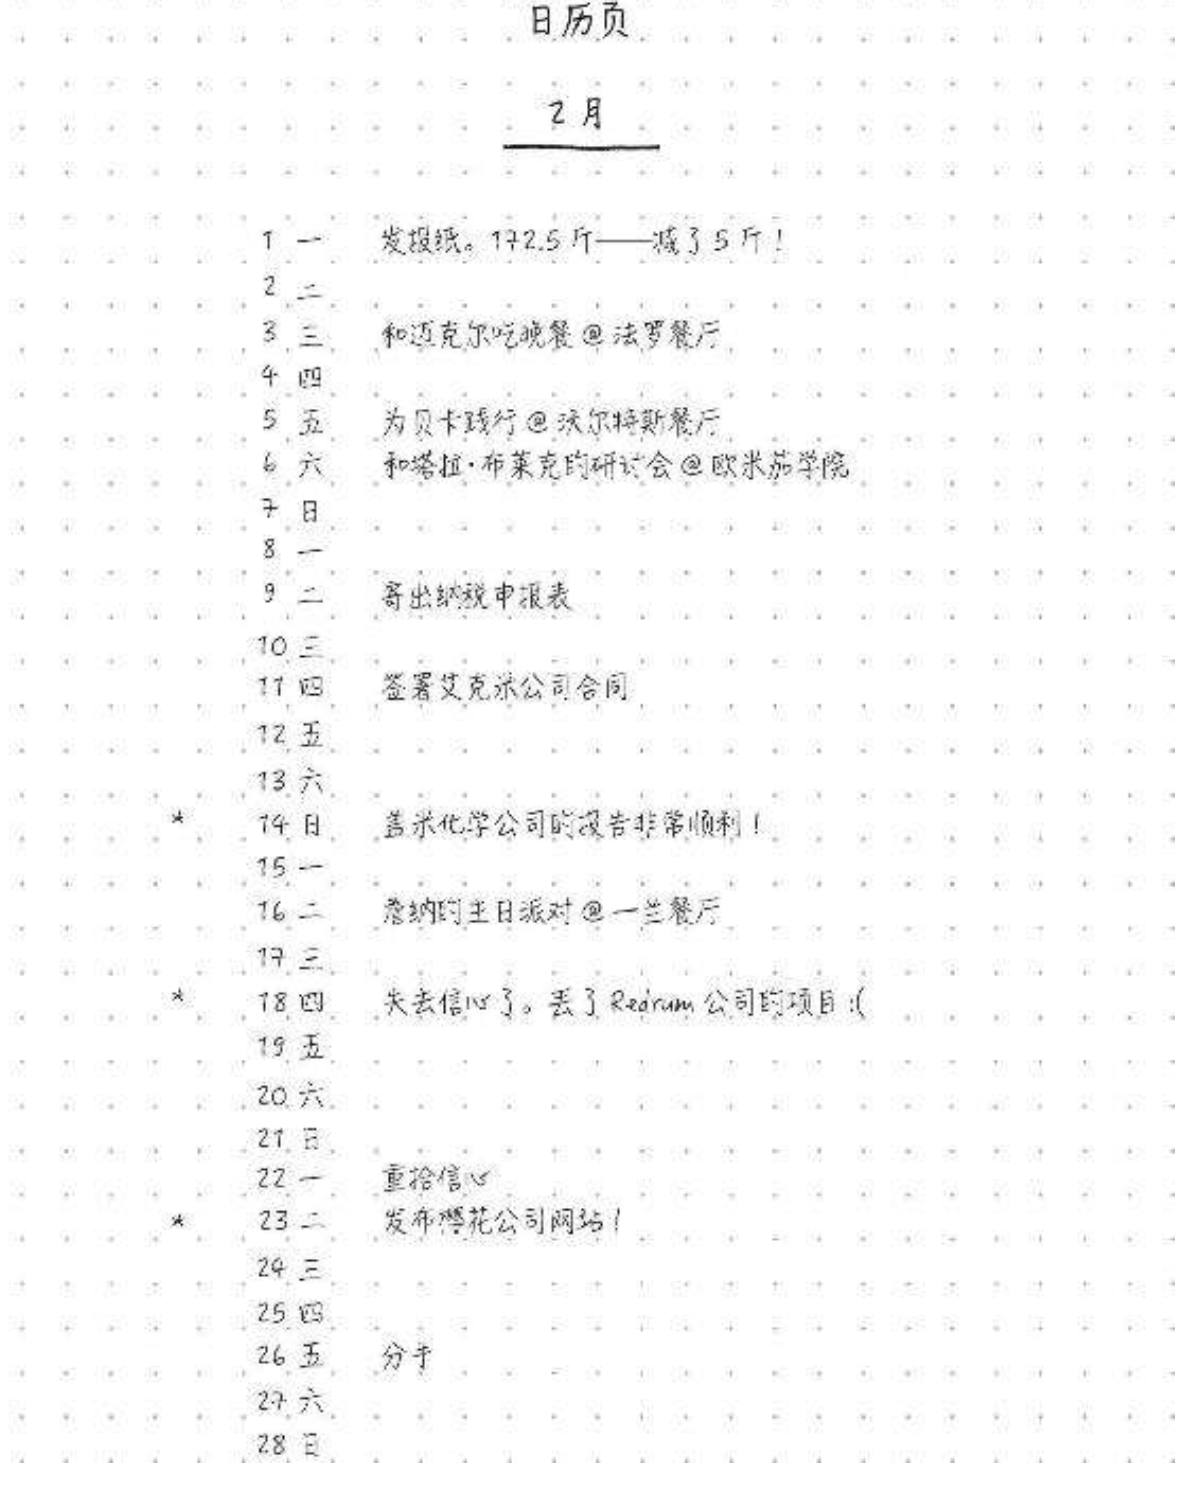 日历页
2 月
1 一 发报纸。172.5 斤——减了 5 斤！
2 二
3 三 和迈克尔吃晚餐 @ 法罗餐厅
4 四
5 五 为贝卡践行 @ 沃尔特斯餐厅
6 六 和塔拉·布莱克的研讨会 @ 欧米茄学院
7 日
8 一
9 二 寄出纳税申报表
10 三
11 四 签署艾克米公司合同
12 五
13 六
* 14 日 盖米化学公司的报告非常顺利！
15 一
16 二 詹纳的生日派对 @ 一兰餐厅
17 三
* 18 四 失去信心了。丢了 Redrum 公司的项目 :(
19 五
20 六
21 日
22 一 重拾信心
* 23 二 发布樱花公司网站！
24 三
25 四
26 五 分手
27 六
28 日